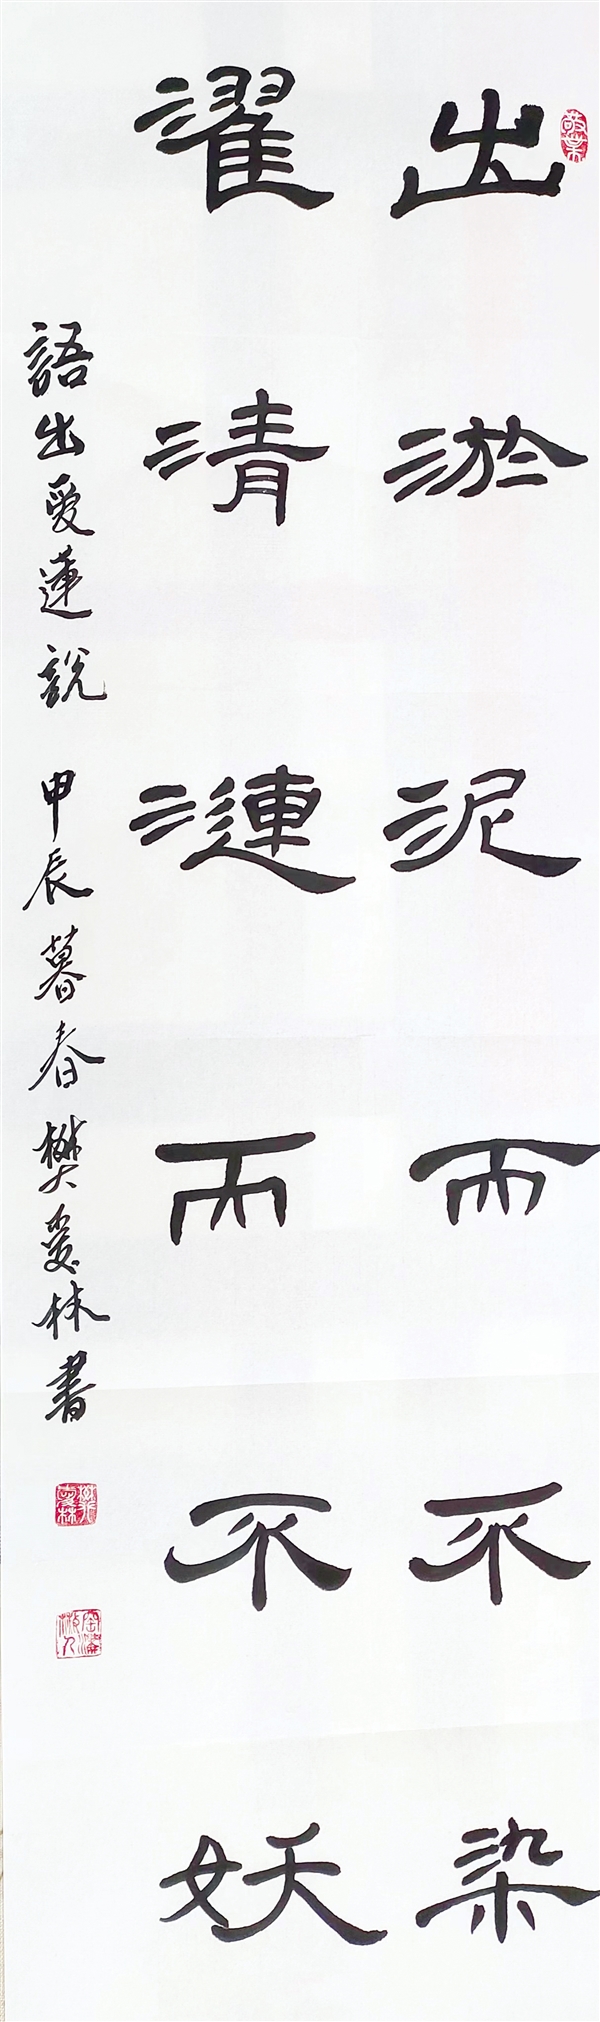 出淤泥而不染
濯清漣而不妖
語出愛蓮說 甲辰暮春樊愛林書
敬業
樊愛林